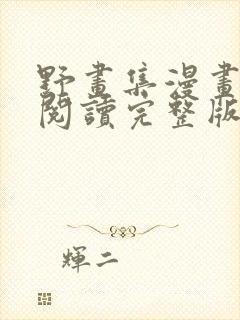 野畫集漫畫
閱讀完整版
輝二